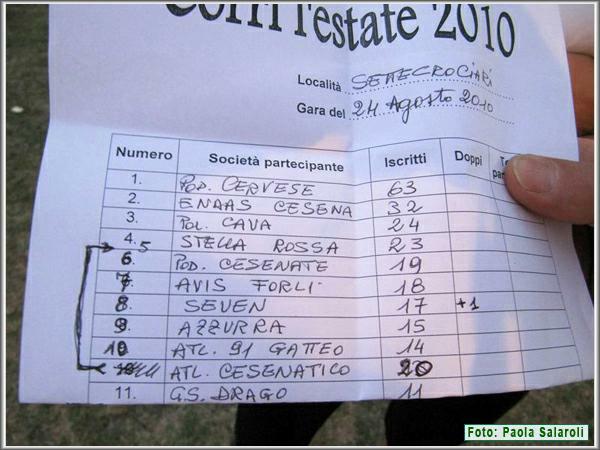 Corri l'estate 2010
Località SETTECROCIARI
Gara del 24 Agosto 2010
Numero Società partecipante Iscritti Doppi
1. POD. CERVESE 63
2. ENAAS CESENA 32
3. POL. CAVA 24
4. STELLA ROSSA 23
5
6. POD. CESENATE 19
7. AVIS FORLI' 18
8. SEVEN 17 +1
9. AZZURRA 15
10 ATL. 91 GATTEO 14
ATL. CESENATICO 20
11. G.S. DRAGO 11
Foto: Paola Salaroli